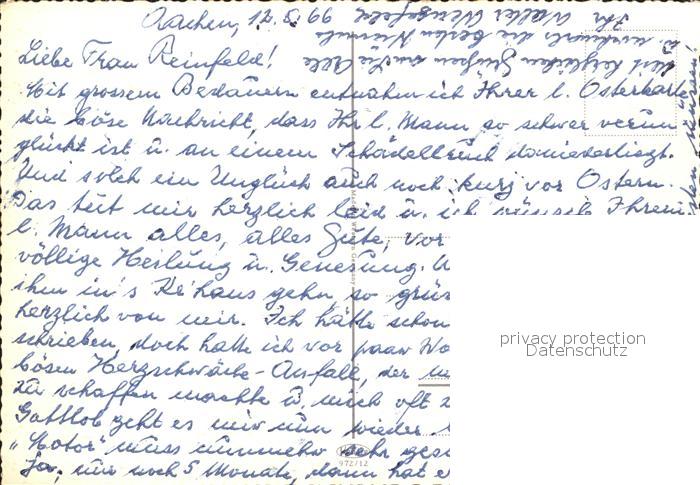 Aachen, 12.5.66
Liebe Frau Reinfeld!
Mit grossem Bedauern entnahm ich Ihrer l. Osterkarte
die böse Nachricht, dass Ihr l. Mann so schwer verun
glückt ist u. an einem Schädelbruch darniederliegt.
Und solch ein Unglück auch noch kurz vor Ostern.
Das tut mir herzlich leid u. ich wünsche Ihrem
l. Mann alles, alles Gute, vor
völlige Heilung u. Genesung. W
ihn in's Kr'haus gehn, so grüs
herzlich von mir. Ich hätte schon
schrieben, doch hatte ich vor paar Wo
bösen Herzschwäche-Anfall, der
zu schaffen machte u. mich oft z
Gottlob geht es mir nun wieder
"Motor" muss nunmehr sehr gesc
Ja, nur noch 5 Monate, dann hat e
Mit herzlichen Grüßen an Sie Alle
Ihr Walter
privacy protection
Datenschutz
972/12